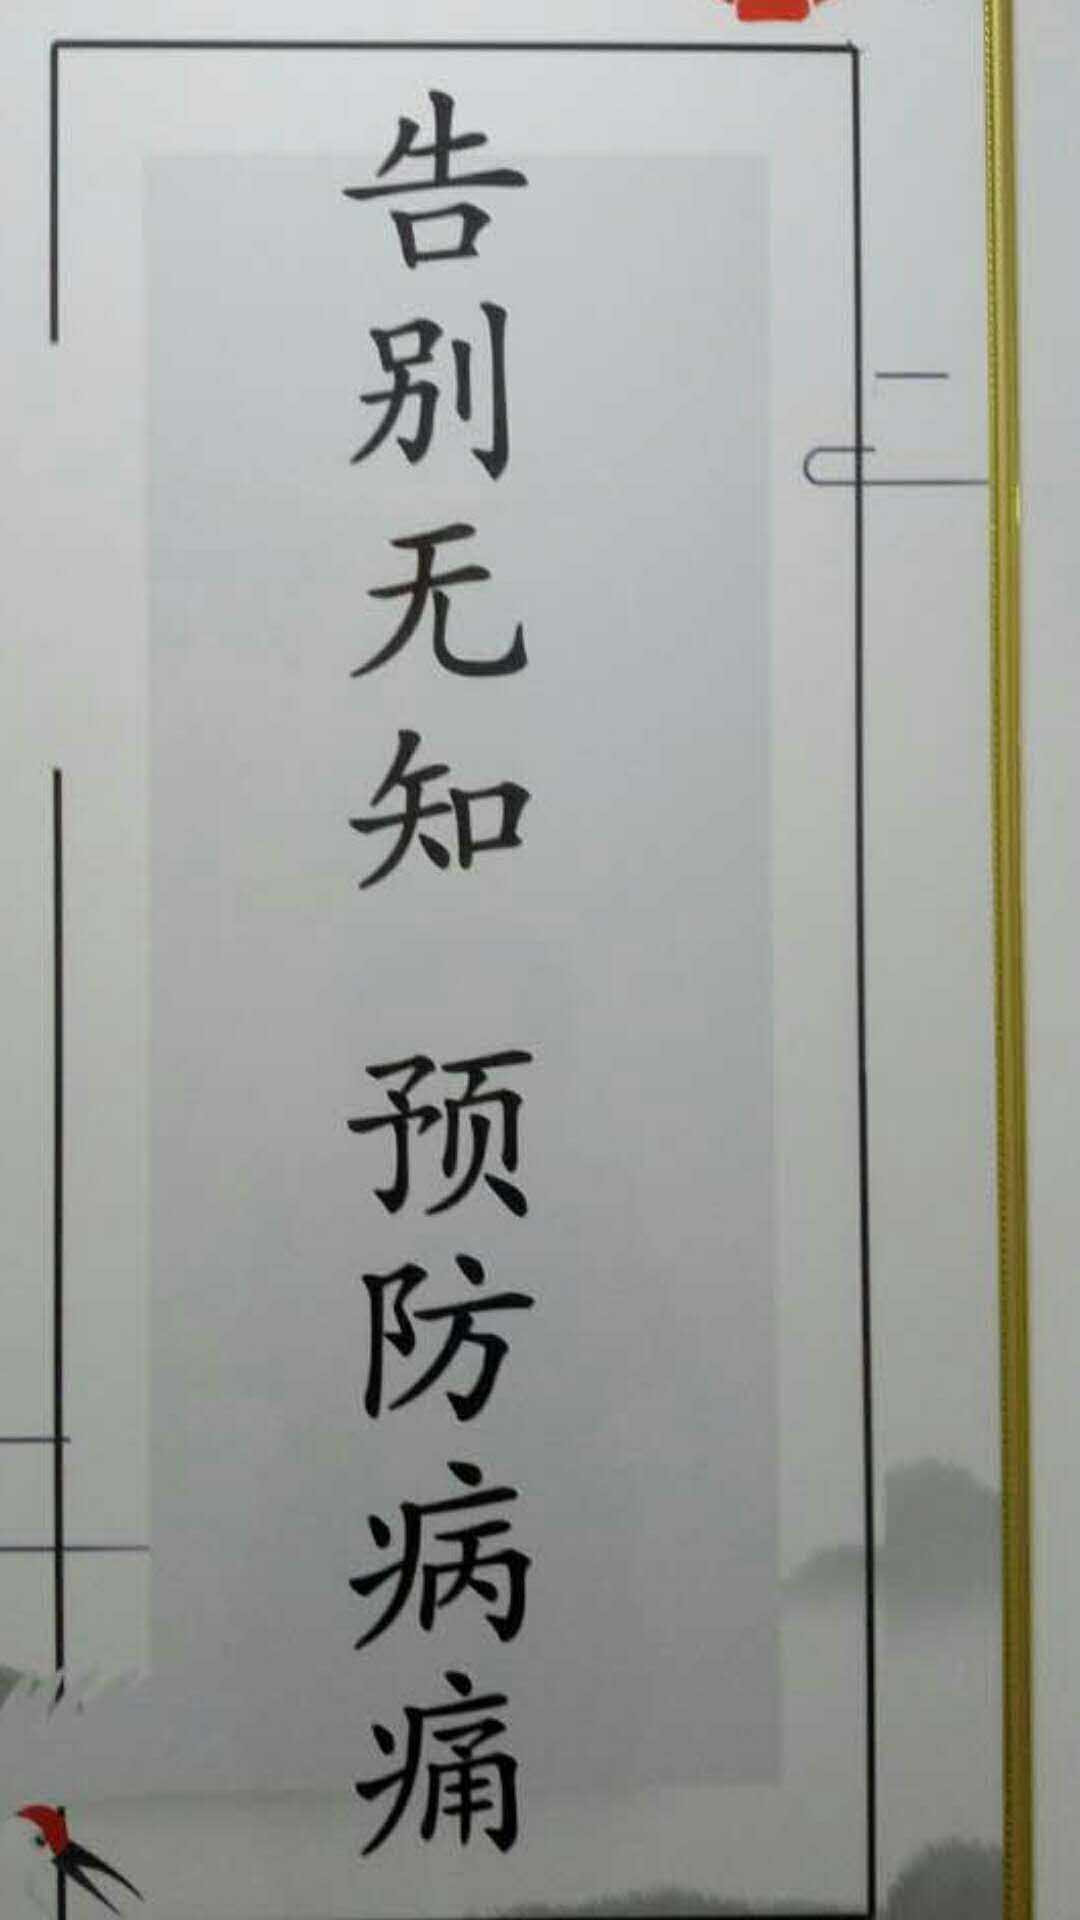 告别无知 预防病痛